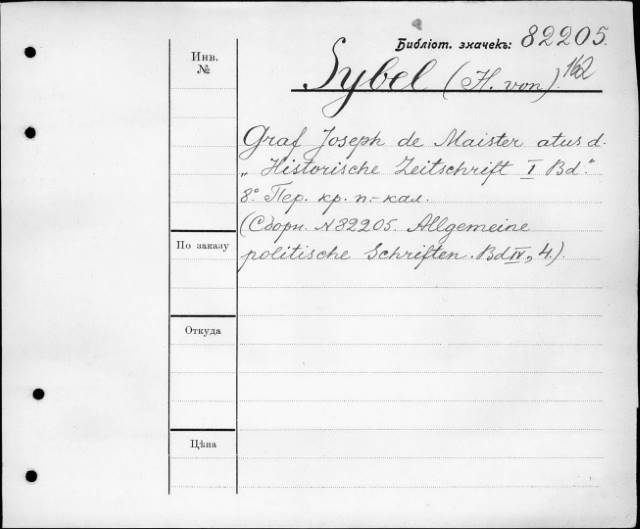 Библіот. значекъ: 82205.
Инв.
№
Sybel (H. von). 162
Graf Joseph de Maister atus d.
„Historische Zeitschrift I Bd."
8° Пер. кр. п.-кал.
(Сборн. N 82205. Allgemeine
По заказу
politische Schriften. Bd IV, 4.)
Откуда
Цѣна